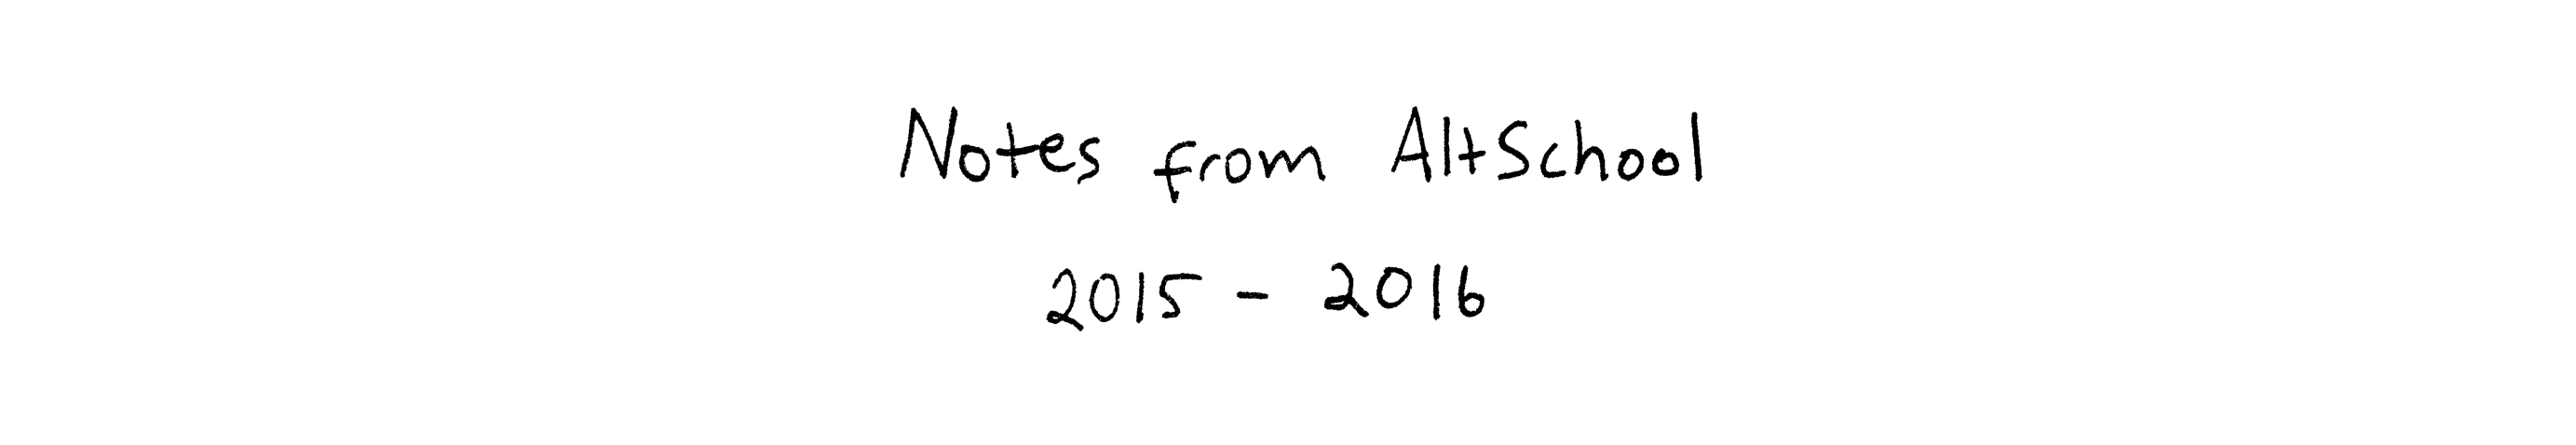 Notes from AltSchool
2015 - 2016